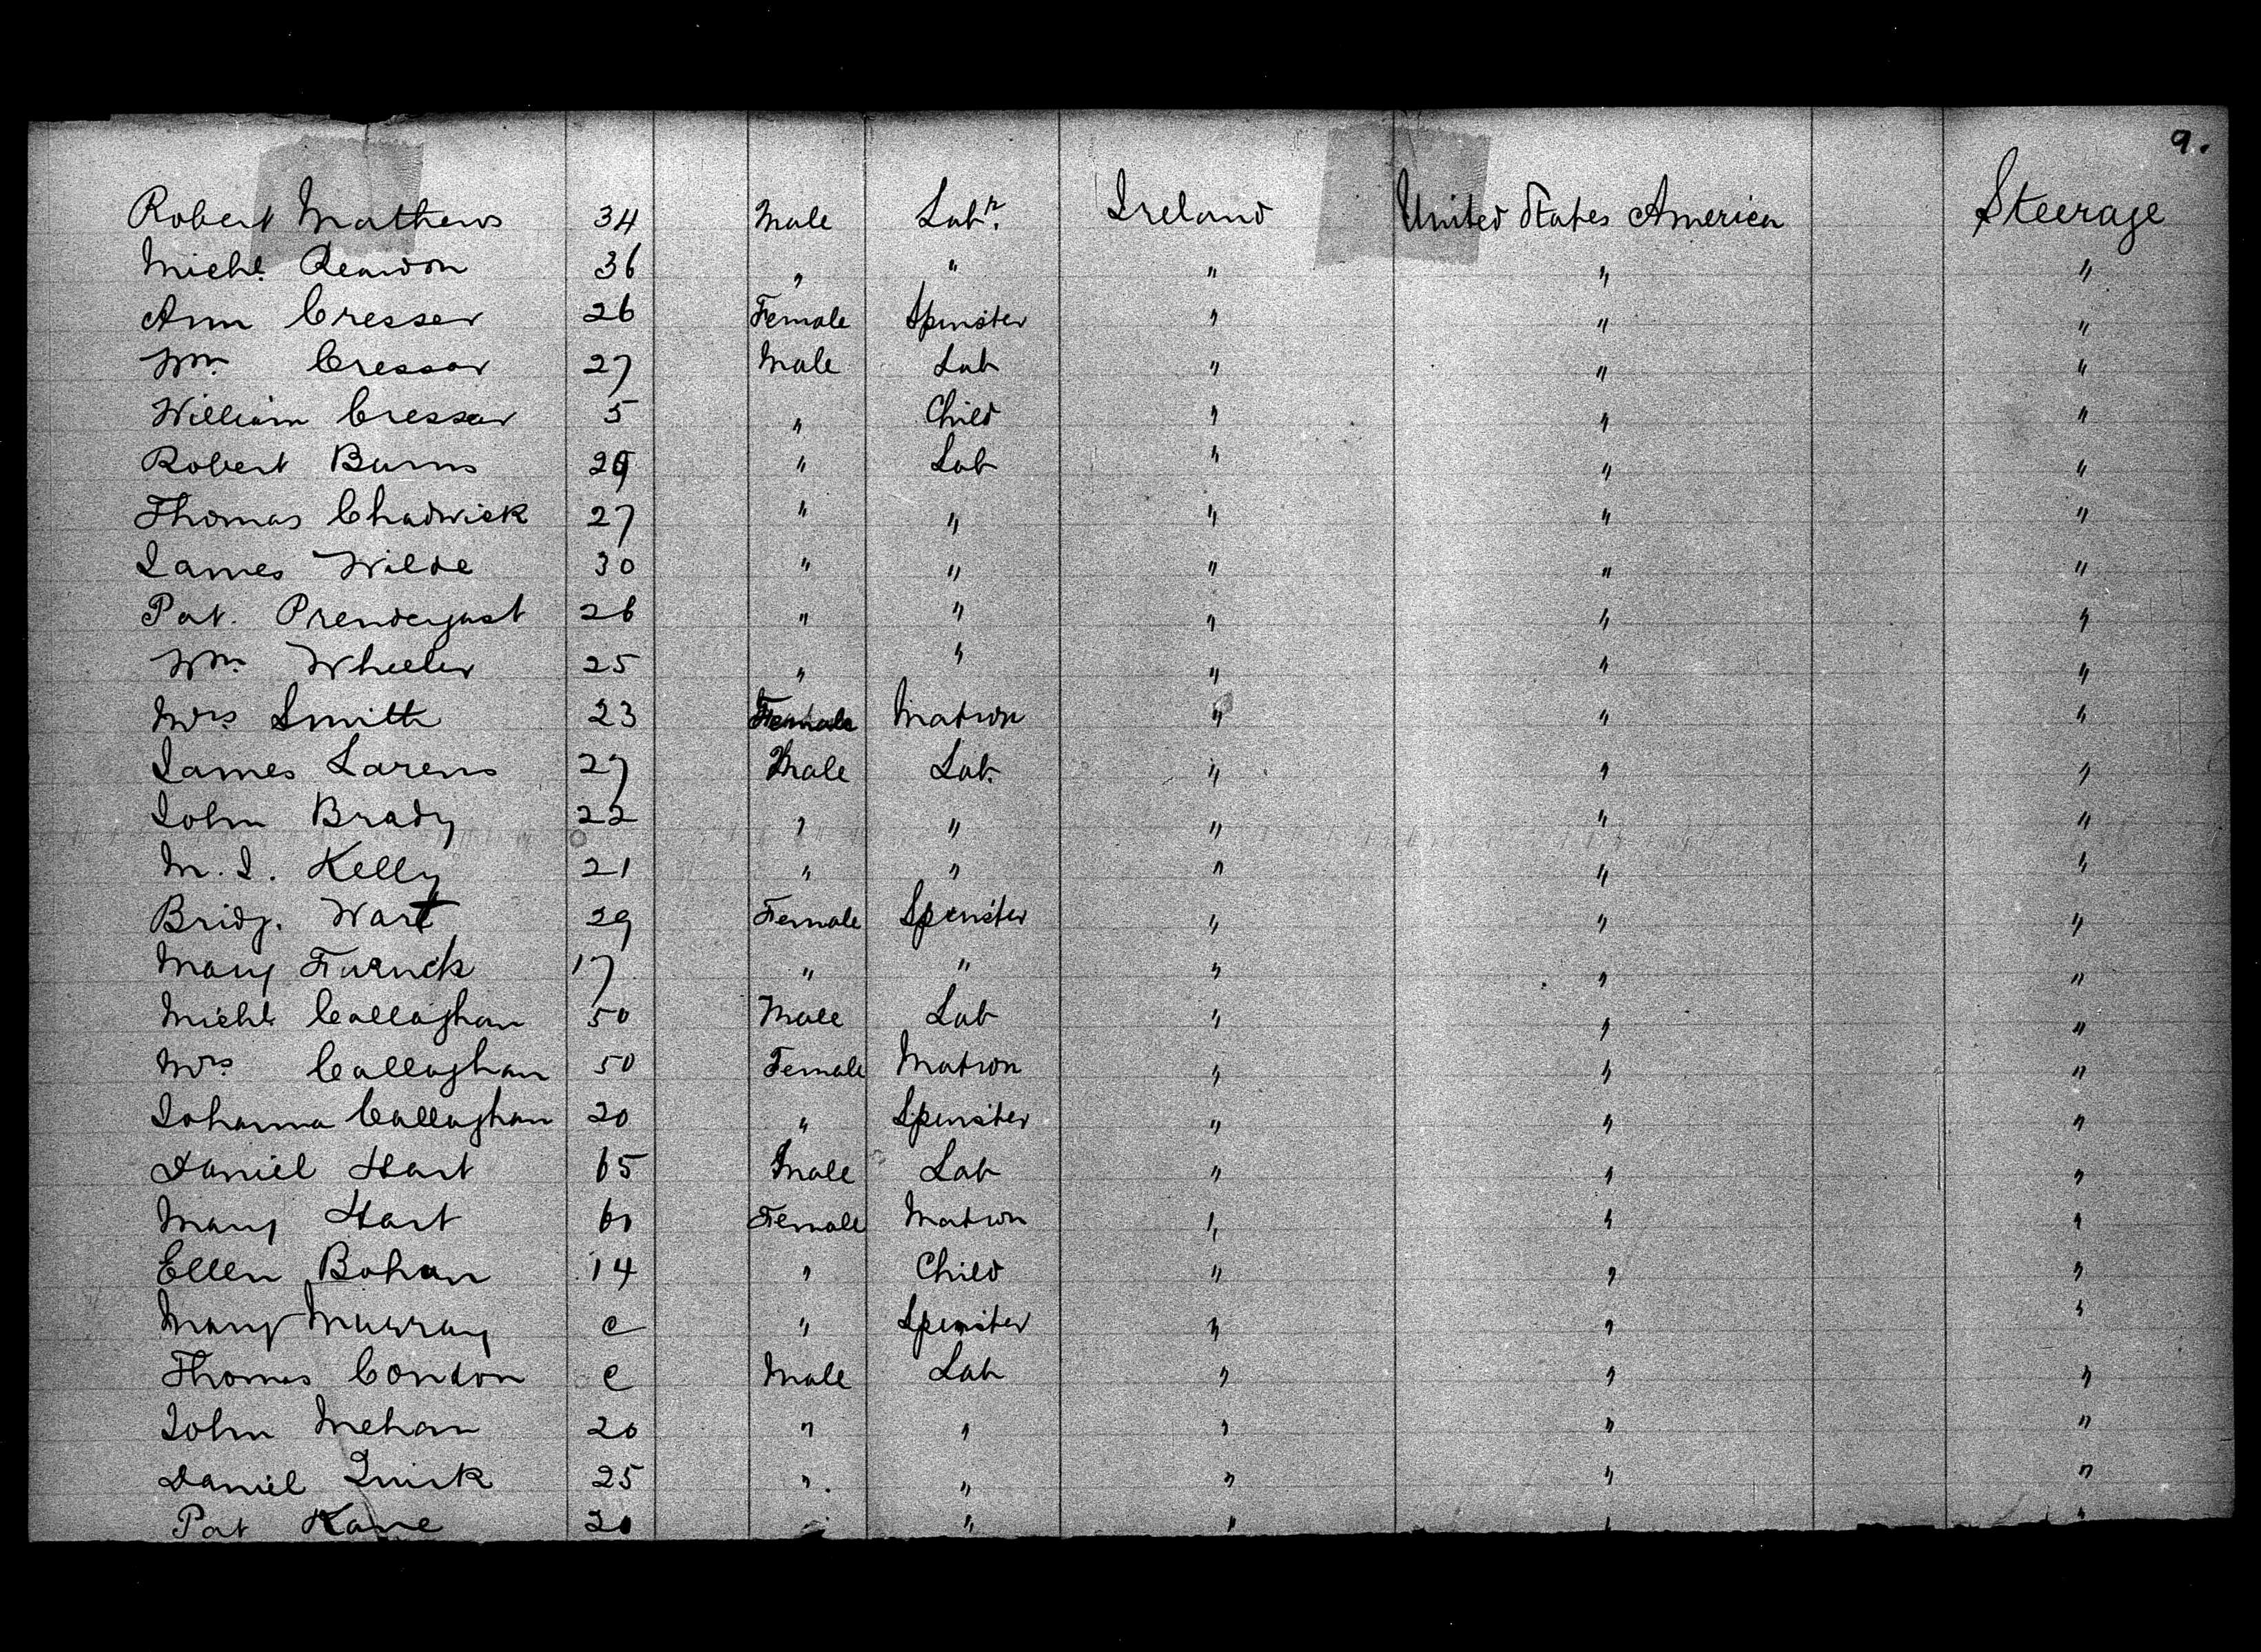 9.
Robert Mathews 34 Male Labr. Ireland United States America Steerage
Michl. Reardon 36 " " " " "
Ann Cresser 26 Female Spinster " " "
Wm. Cresser 27 Male Lab " " "
William Cresser 5 " Child " " "
Robert Burns 29 " Lab " " "
Thomas Chadwick 27 " " " " "
James Wilde 30 " " " " "
Pat. Prendergast 26 " " " " "
Wm. Wheeler 25 " " " " "
Mrs Smith 23 Female Matron " " "
James Larens 27 Male Lab. " " "
John Brady 22 " " " " "
M. J. Kelly 21 " " " " "
Bridg. Wart 29 Female Spinster " " "
Mary 17 " " " " "
Michl Callaghan 50 Male Lab " " "
Mrs Callaghan 50 Female Matron " " "
Johanna Callaghan 20 " Spinster " " "
Daniel Hart 65 Male Lab " " "
Mary Hart Female Matron " " "
Ellen Bohan 14 " Child " " "
Mary Murray c " Spinster " " "
Thomas Condon c Male Lab " " "
John Mehan 20 " " " " "
Daniel Quirk 25 " " " " "
Pat Kane " " " " "